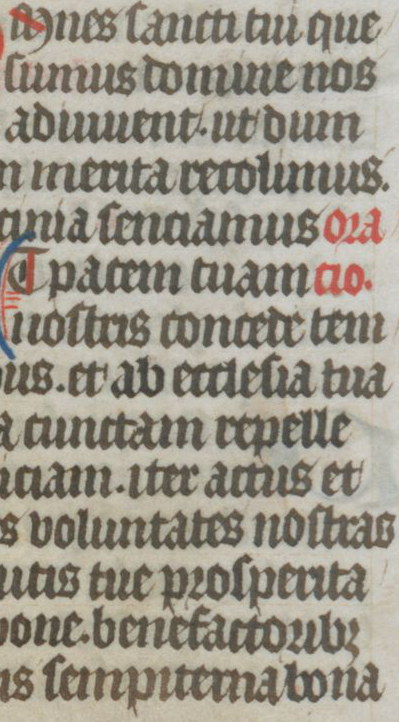 Omnes sancti tui que
sumus domine nos
adiuuent. ut dum
merita recolimus.
senciamus ora
Et pacem tuam cio.
nostris concede tem
et ab ecclesia tua
cunctam repelle
iter actus et
voluntates nostras
tue prosperita
benefactoribz
sempiterna bona